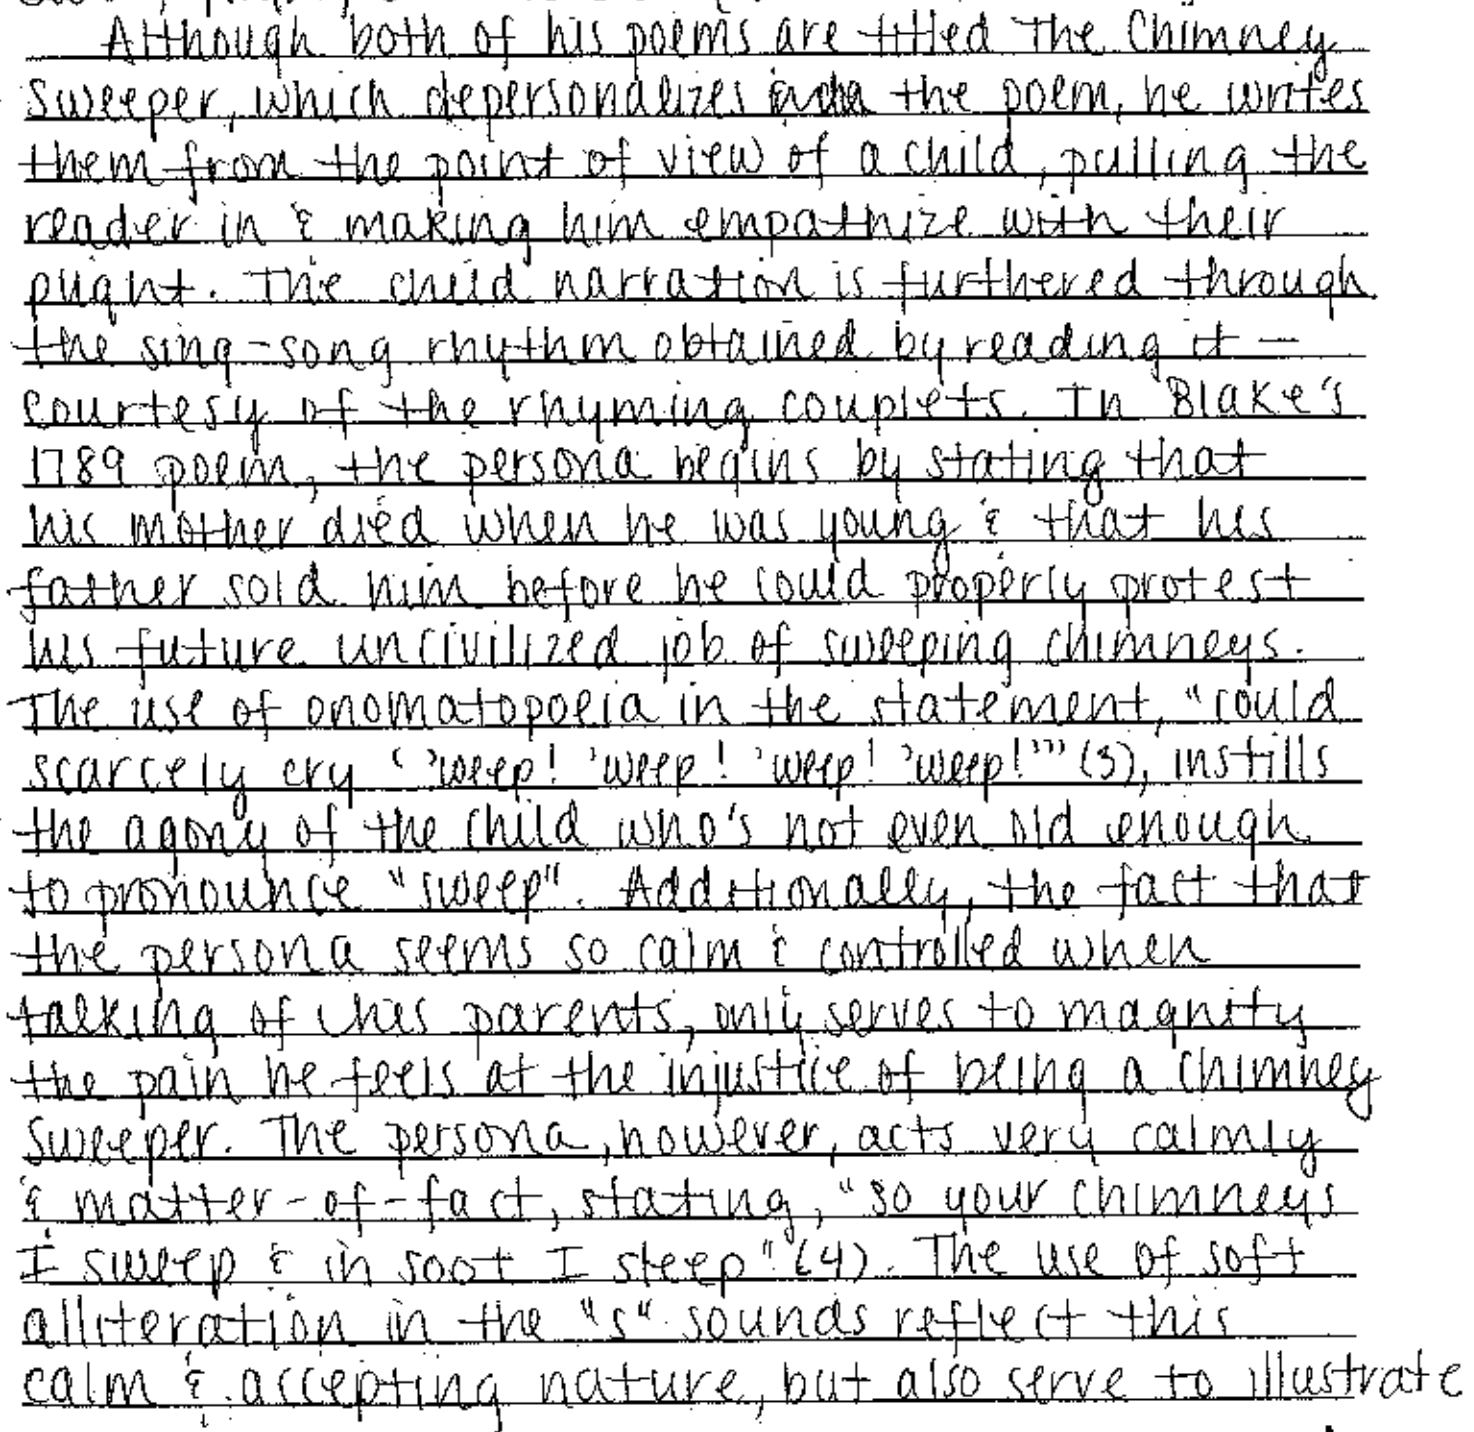 Although both of his poems are titled The Chimney
Sweeper, which depersonalizes the poem, he writes
them from the point of view of a child, pulling the
reader in & making him empathize with their
plight. The child narration is furthered through
the sing-song rhythm obtained by reading it —
courtesy of the rhyming couplets. In Blake's
1789 poem, the persona begins by stating that
his mother died when he was young & that his
father sold him before he could properly protest
his future uncivilized job of sweeping chimneys.
The use of onomatopoeia in the statement, "could
scarcely cry ('weep! 'weep! 'weep! 'weep!'" (3), instills
the agony of the child who's not even old enough
to pronounce "sweep". Additionally, the fact that
the persona seems so calm & controlled when
talking of his parents, only serves to magnify
the pain he feels at the injustice of being a chimney
sweeper. The persona, however, acts very calmly
& matter-of-fact, stating, "so your chimneys
I sweep & in soot I sleep" (4). The use of soft
alliteration in the "s" sounds reflect this
calm & accepting nature, but also serve to illustrate